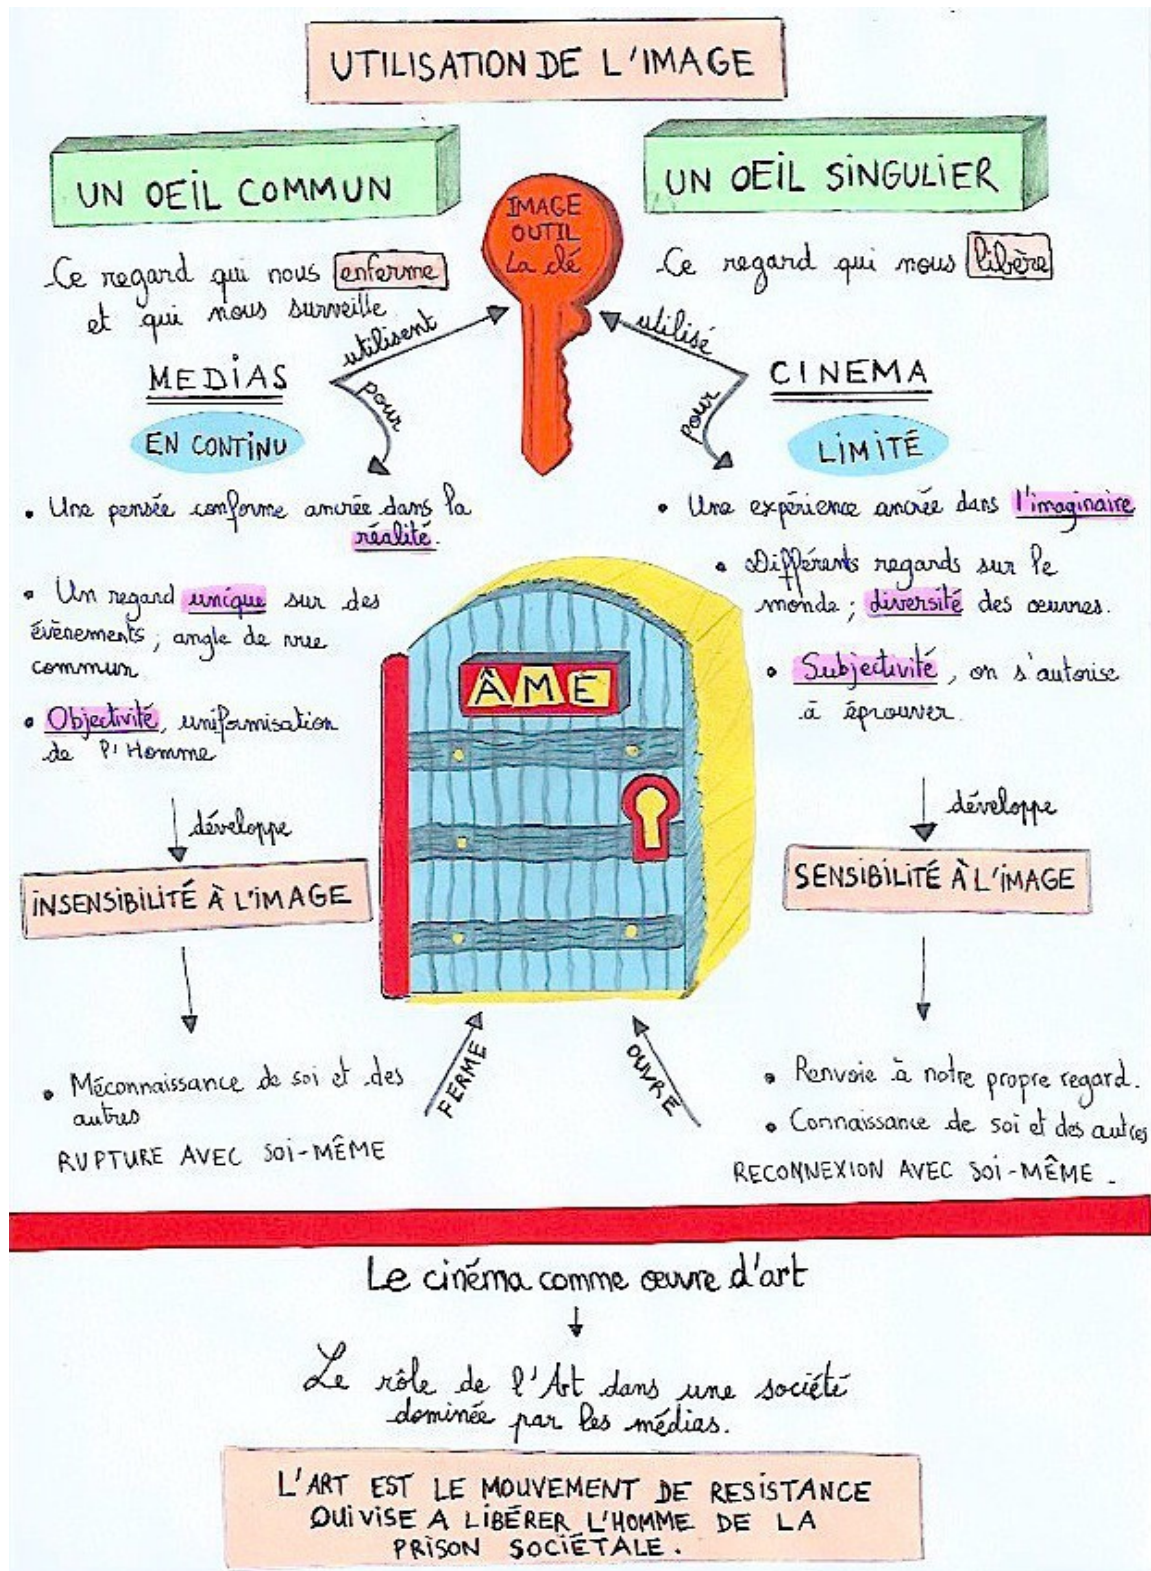 UTILISATION DE L'IMAGE
UN OEIL COMMUN
Ce regard qui nous enferme
et qui nous surveille
IMAGE
OUTIL
La clé
UN OEIL SINGULIER
Ce regard qui nous libère
utilisent
pour
MEDIAS
EN CONTINU
utilisé
pour
CINEMA
LIMITÉ
• Une pensée conforme ancrée dans la
réalité.
• Un regard unique sur des
évènements ; angle de vue
commun
• Objectivité, uniformisation
de l'Homme
développe
INSENSIBILITÉ À L'IMAGE
• Méconnaissance de soi et des
autres
RUPTURE AVEC SOI-MÊME
ÂME
FERME
OUVRE
• Une expérience ancrée dans l'imaginaire
• Différents regards sur le
monde ; diversité des œuvres.
• Subjectivité, on s'autorise
à éprouver.
développe
SENSIBILITÉ À L'IMAGE
• Renvoie à notre propre regard.
• Connaissance de soi et des autres
RECONNEXION AVEC SOI-MÊME.
Le cinéma comme œuvre d'art
Le rôle de l'Art dans une société
dominée par les médias.
L'ART EST LE MOUVEMENT DE RESISTANCE
QUI VISE A LIBÉRER L'HOMME DE LA
PRISON SOCIÉTALE.